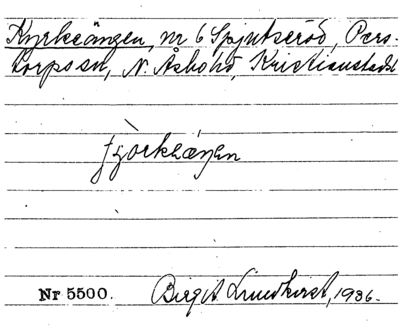 Kyrkeängen, nr 6 Spjutseröd, Pers-
torps sn, N. Åsbohd, Kristianstads l
fjörkeäŋen
Nr 5500. Birgit Lindkvist, 1936.